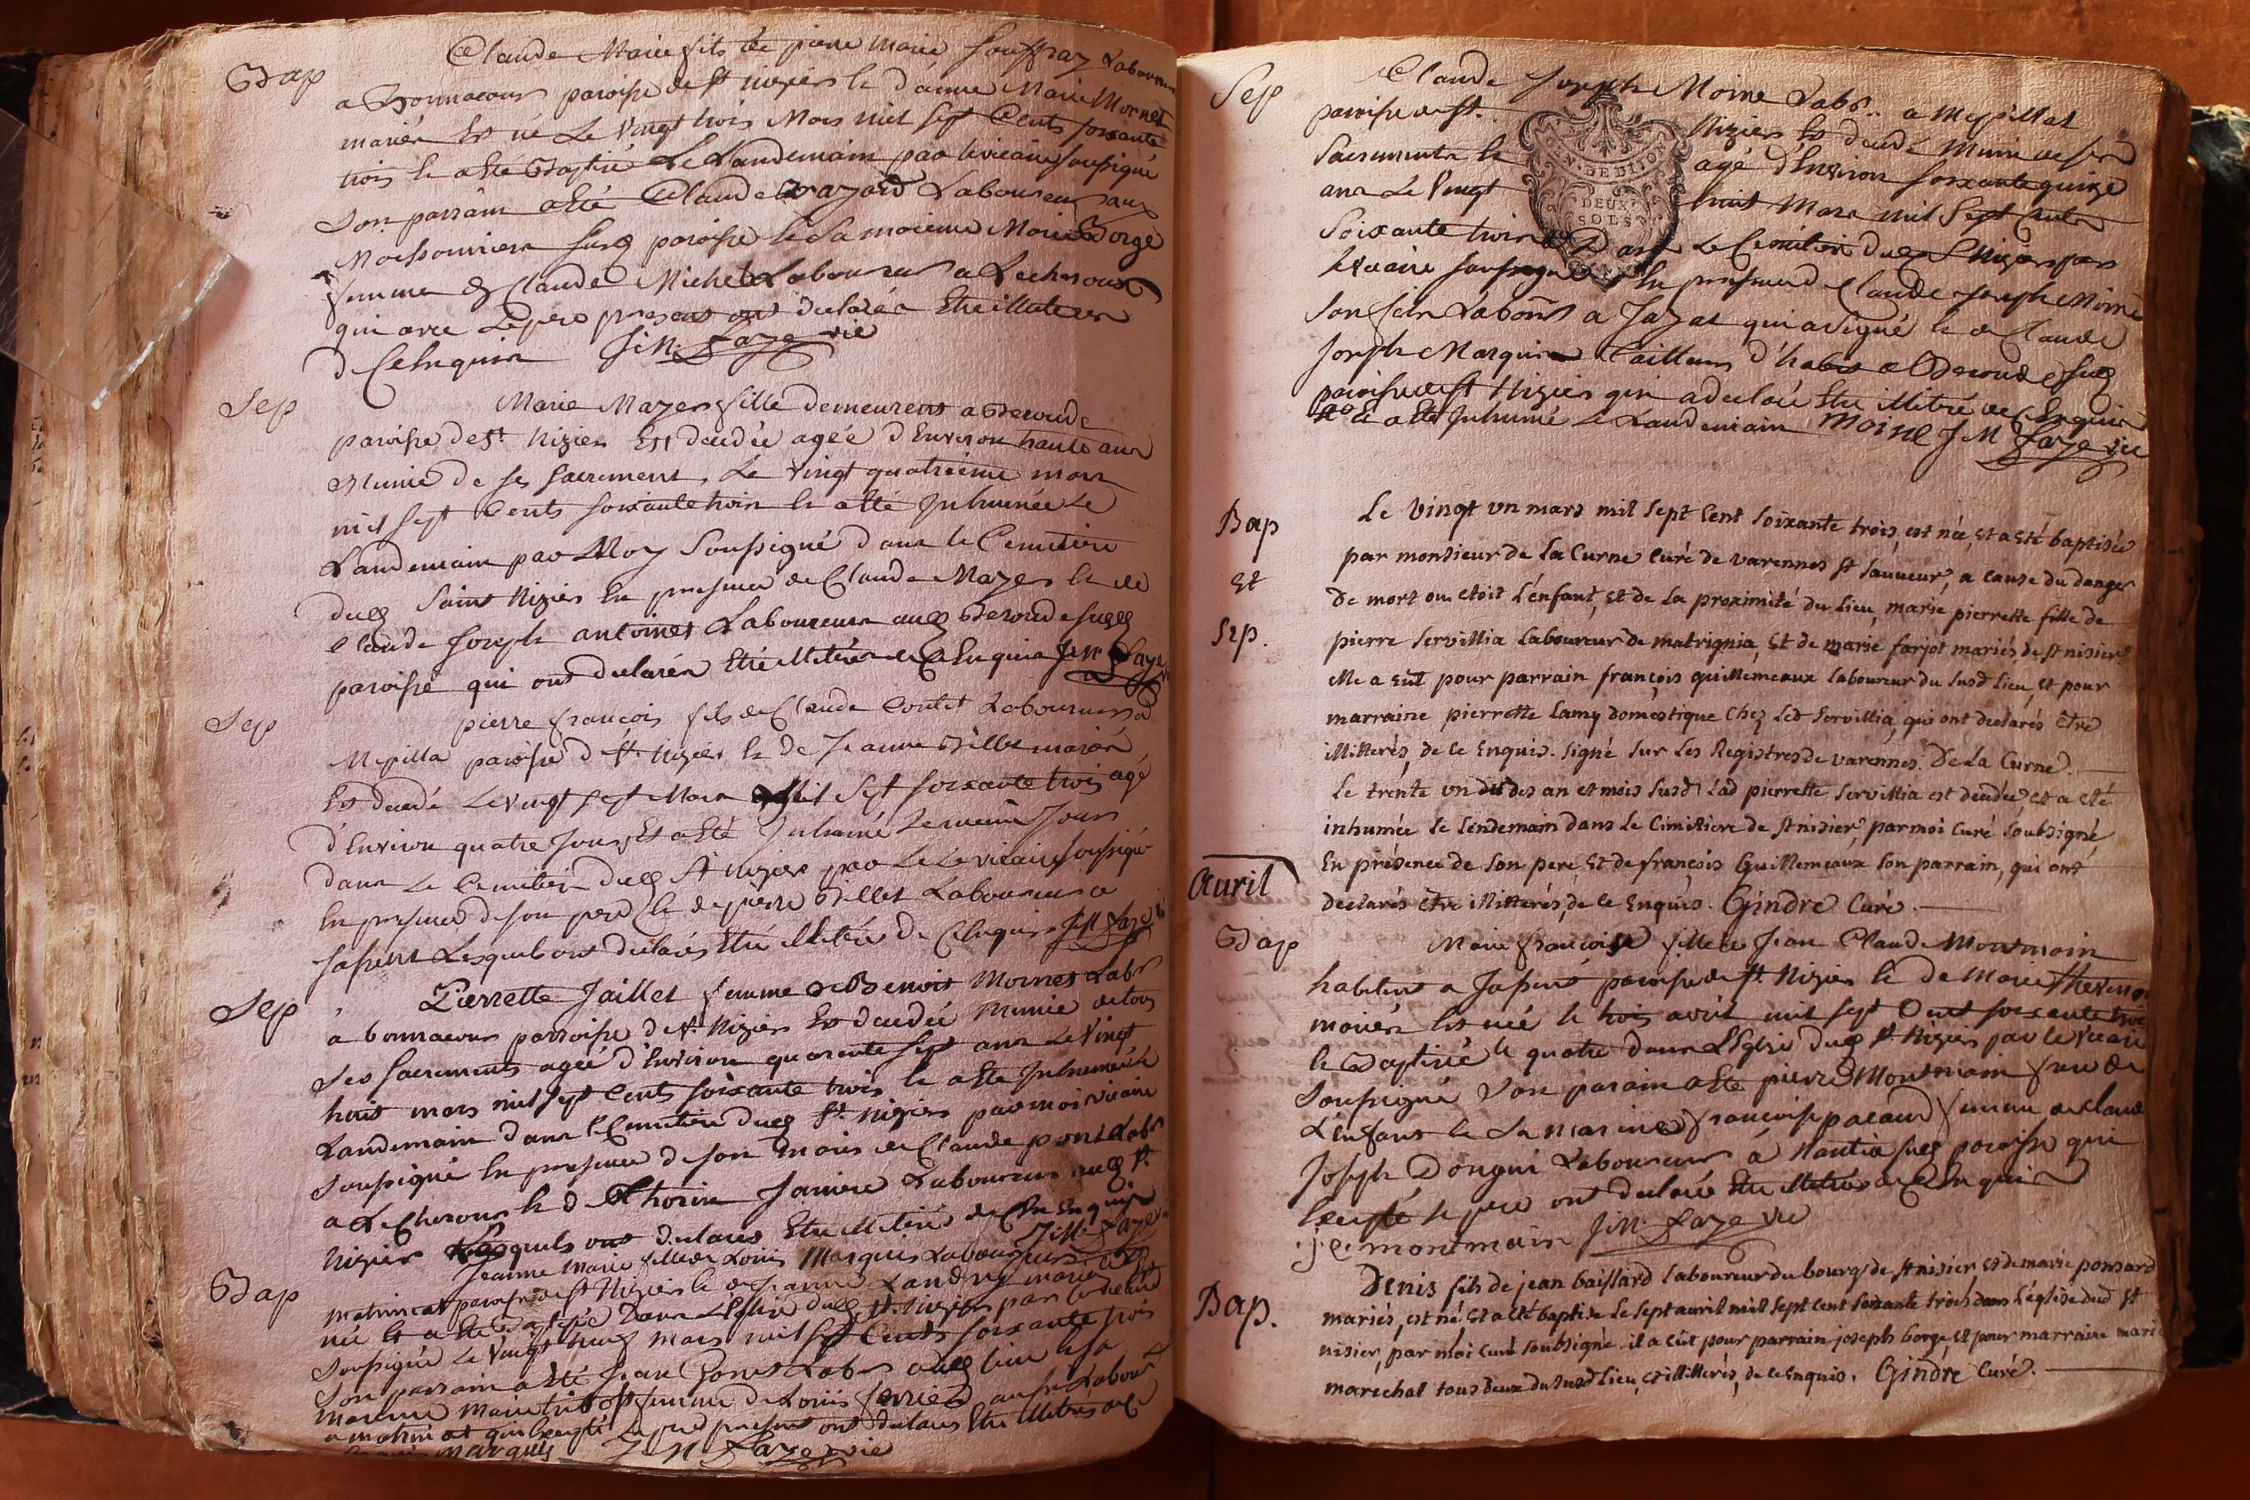 Bap
Claude Marie fils de pierre Marie Laboureur
a Bonnacour paroisse de St nizier & d'anne Marie Mornet
mariés Est né Le Vingt trois Mars mil sept Cents soixante
trois & a Ete Baptisé Le Landemain par le vicaire soussigné
Son parrain a Eté Claude Laboureur aux
susd paroisse & Sa maraine Marie Borge
femme de Claude Michel Laboureur a Lecheroux
qui avec Le pere presens ont declarés Etre illiteres
de Ce Enquis J M. Faze vic
Sep
Marie Mazer fille demeurent a Beroude
paroisse de St. Nizier Est decedée agée d'Environ trante ans
Munie de ses sacrement, Le vingt quatrieme mars
mil sept Cents soixante trois & a Eté Inhumée Le
Landemain par Moy Soussigné dans le Cemetiere
dud Saint Nizier En presence de Claude Mazer & de
Claude Joseph antoinet Laboureurs aud Beroude susd
paroisse qui ont declarés Etre illiterés de Ce Enquis J M Faze
Sep
pierre francois fils de Claude Laboureur a
Mepilla paroisse de St. Nizier & de Jeanne Billet mariés
Est decedé Le vingt sept Mars Mil Sept soixante trois agé
d'Environ quatre Jours Et a Eté Inhumé Le meme Jours
dans Le Cemetiere dud St Nizier par Le vicaire soussigné
En presence de son pere & de pierre Billet Laboureur a
Lesquels ont declarés Etre illiteré de Ce Enquis J M Faze
Sep
Pierrette Jaillet femme de Benoit Mornet Labr
a bonnacour parroisse de St. Nizier Est decedée Munie de tous
Ses Sacrements agée d'Environ quarante sept ans Le Vingt
huit mars mil sept Cents soixante trois & a Eté Inhumée Le
Landemain dans le Cemetiere dud St. Nizier par moi vicaire
Soussigné En presence de son maris de Claude pont Labr
a Lecheroux & de Laboureur aud St.
Nizier Lesquels ont declarés Etre illiterés de Ce Enquis
J M Faze
Bap
Jeanne Marie fille de Louis Marquis Laboureur a
matrincat paroisse de St Nizier & de Jeanne Landry mariés Est
née & a Eté Baptisée Dans L'Eglise dud St. Nizier par
Soussigné Le Vingt neuf mars mil sept Cents soixante trois
Son parrain a Eté Jean Labr aud lieu & sa
maraine Marie femme de Louis Labour
a matrincat qui Excepté Le pere present ont declarés Etre illiterés de Ce
marquis J M Faze vic
Sep
Claude Joseph Moine Labr. a Mepillat
paroisse de St. Nizier Est decedé Muni de ses
Sacrements & agé d'Environ soixante quinze
ans Le Vingt huit Mars mil Sept Cents
Soixante trois Dans Le Cemetiere dud St Nizier par
le vicaire soussigné En presence de Claude Joseph Moine
Son fils Labour a Jazat qui a Signé & de Claude
Joseph Marquis tailleur d'habit a Beroude susd
paroisse de St Nizier qui a declaré Etre illitré de Ce Enquis
& a Eté Inhumé Le Landemain Moine J M Faze vic
DEUX
SOLS
Bap
Et
Sep.
Le vingt un mars mil sept cent soixante trois, est née, Et a Eté baptisée
par monsieur de La Curne curé de varennes st sauveur, a cause du danger
De mort ou etoit L'enfant, Et de La proximité du Lieu, marie pierrette fille de
pierre servillia Laboureur de matrignia, Et de marie farjot mariés de st nisier
elle a eut pour parrain françois guillemeaux laboureur du susd Lieu, et pour
marraine pierrette Lamy domestique chez Led servillia, qui ont declarés être
illitterés, de ce Enquis. signé sur Les Registres de varennes. De La Curne.
Le trente un desdits an et mois susd Lad pierrette servillia est decedée, et a eté
inhumée le lendemain dans Le cimitiere de st nisier, par moi curé soubsigné
En présence de son pere et de françois Guillemeaux son parrain, qui ont
declarés être illitterés, de ce Enquis. Gindre curé.
Avril
Bap
Marie françoise fille de Jean Claude Montmain
habitent a paroisse de St. Nizier & de Marie thevenon
mariés Est née le trois avril mil sept Cent soixante trois
& Baptisée le quatre dans L'Eglise dud St. Nizier par le vicaire
Soussigné Son parain a Eté pierre Montmain frere de
L'Enfant & Sa maraine françoise pacaud femme de Claude
Joseph Donguï Laboureur a Nantia susd paroisse qui
Excepté le pere ont declaré Etre illitrés de Ce Enquis
j.c. montmain J M. Faze vic
Bap.
Denis fils de jean Gaillard laboureur du bourg de st nisier, et de marie ponsard
mariés, est né et a eté baptisé Le sept avril mil sept cent soixante trois dans L'église dud st
nisier, par moi curé soubsigné il a eût pour parrain joseph borge, et pour marraine marie
marechal tous deux du susd Lieu, et illitterés, de ce Enquis. Gindre curé.